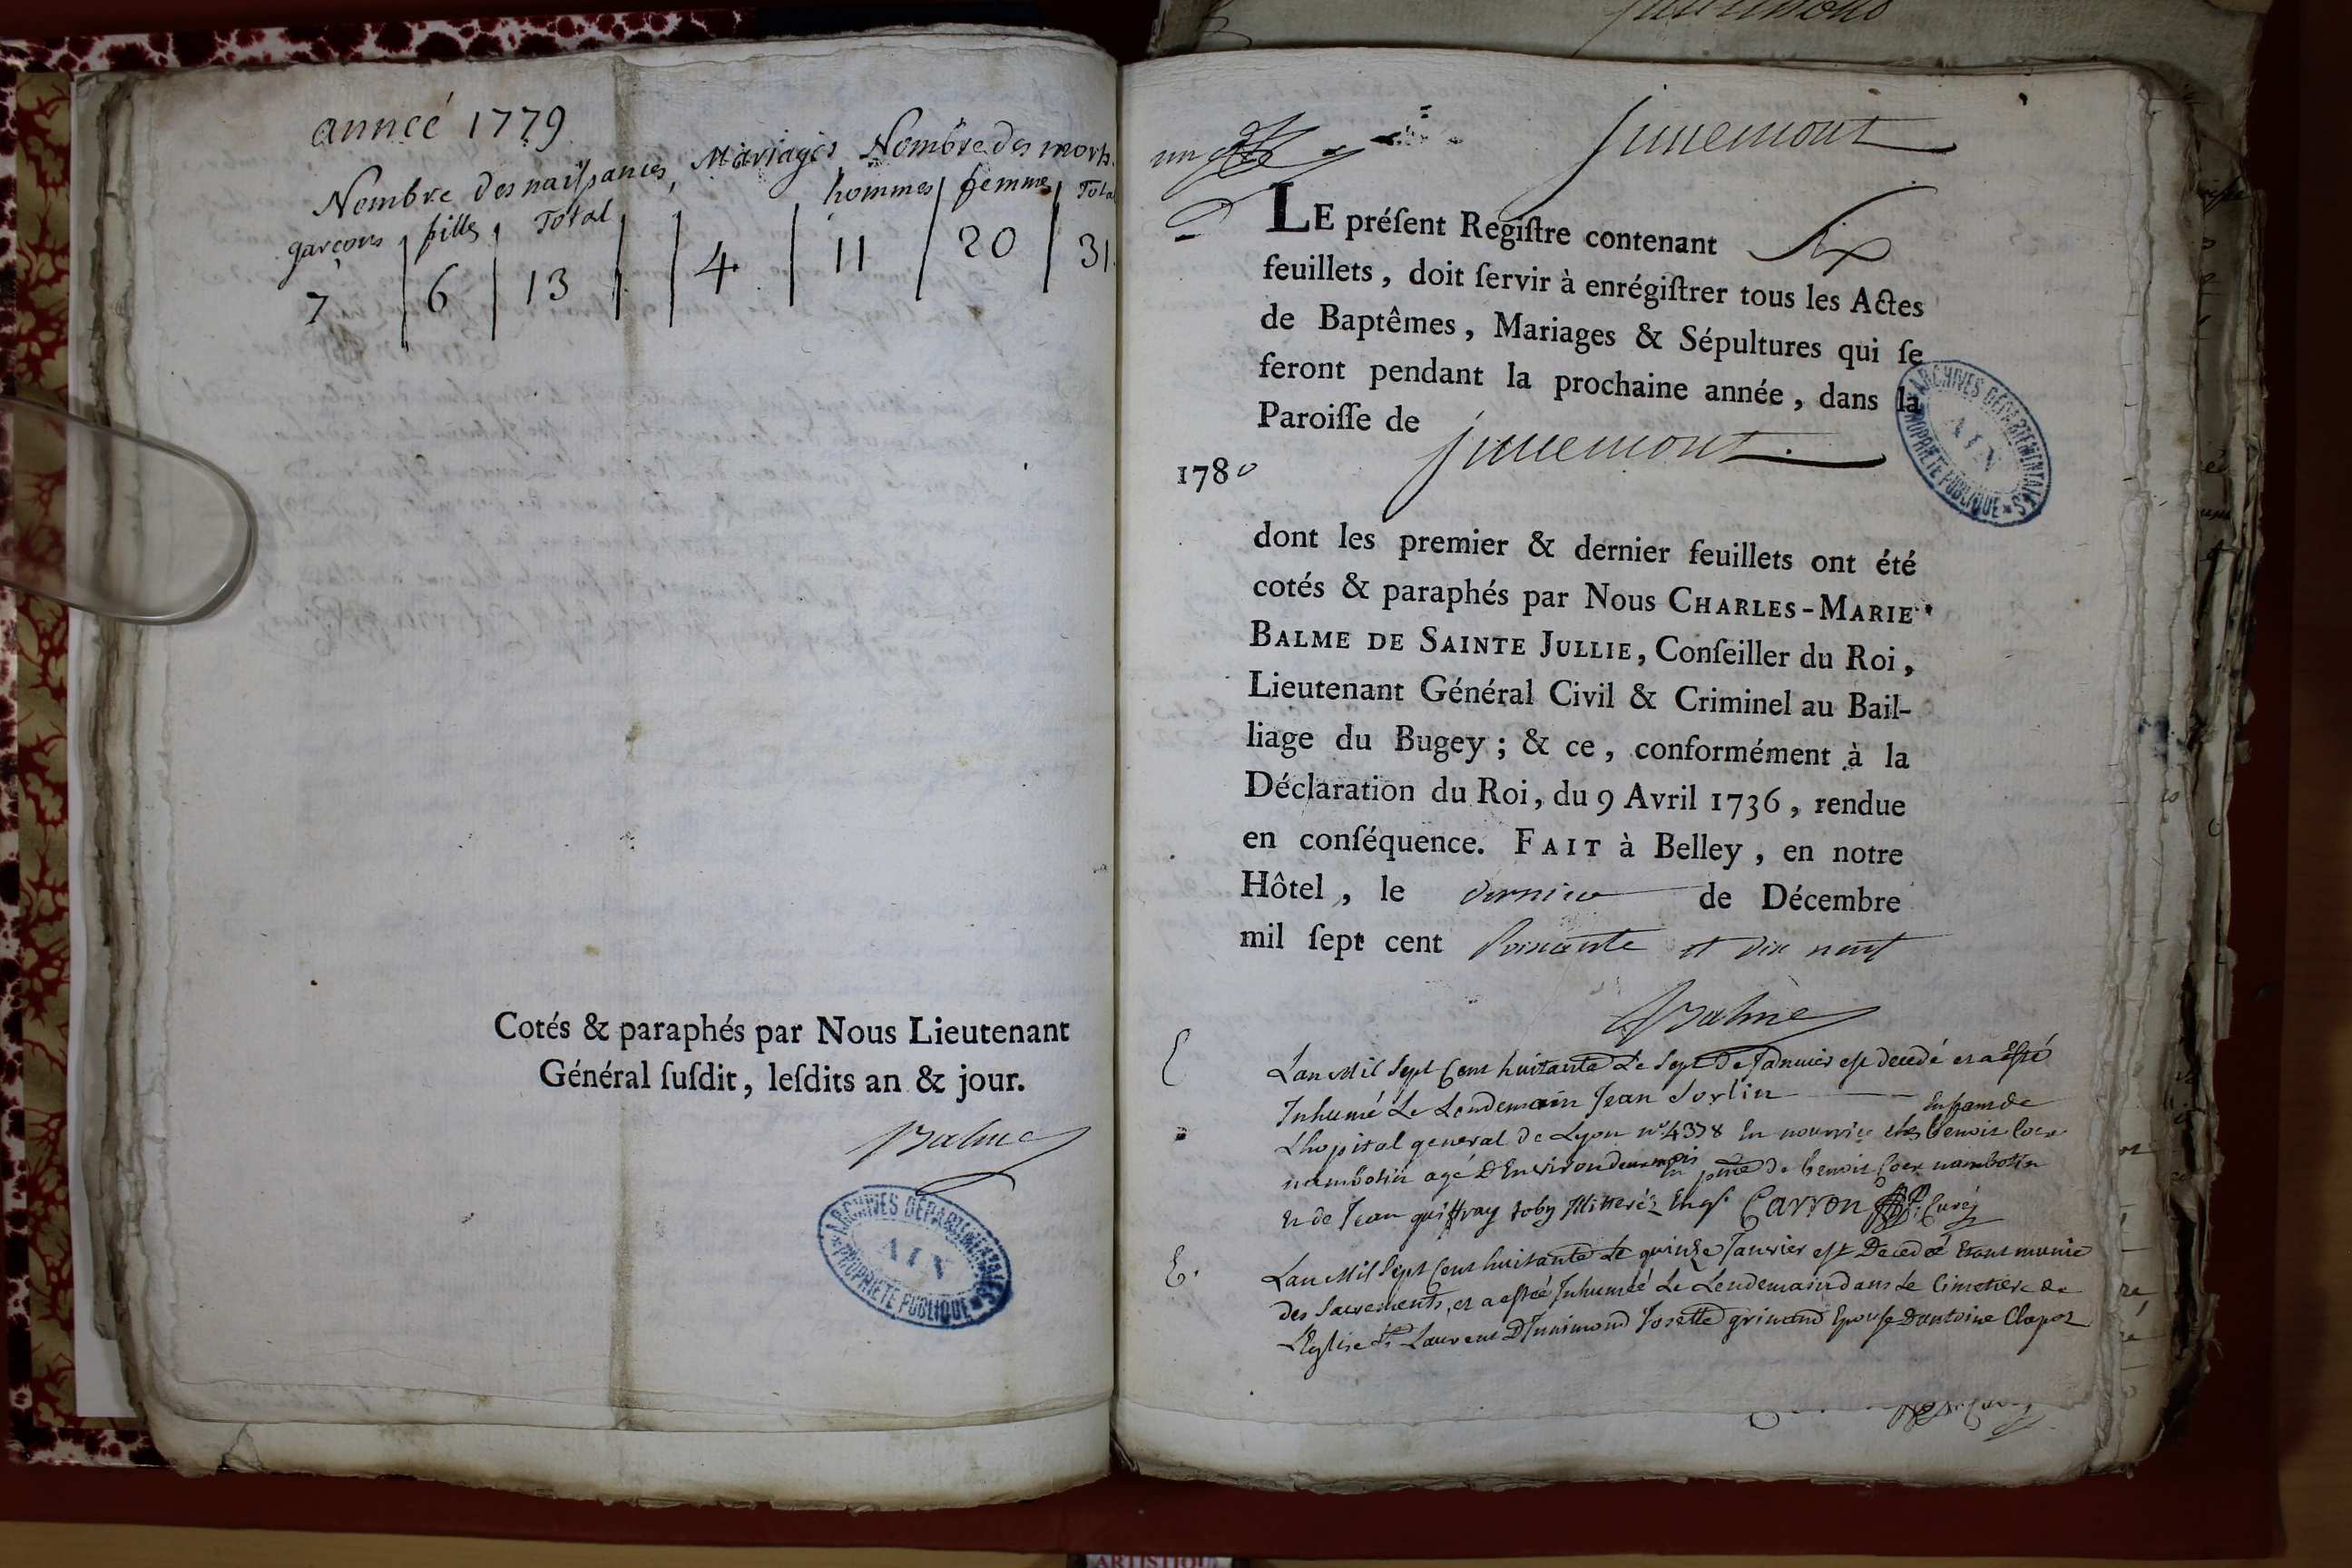 anneé 1779
Nombre des naissances, Mariages Nombre des morts
garçons filles Total hommes femmes Total
7 6 13 4 11 20 31
Cotés & paraphés par Nous Lieutenant
Général ſuſdit, leſdits an & jour.
Balme
ARCHIVES DÉPARTEMENTALES
AIN
PROPRIÉTÉ PUBLIQUE
un
Innemont
LE préſent Regiſtre contenant Six
feuillets, doit ſervir à enrégiſtrer tous les Actes
de Baptêmes, Mariages & Sépultures qui ſe
feront pendant la prochaine année, dans la
Paroiſſe de Innemont.
1780
ARCHIVES DÉPARTEMENTALES
AIN
PROPRIÉTÉ PUBLIQUE
dont les premier & dernier feuillets ont été
cotés & paraphés par Nous CHARLES-MARIE
BALME DE SAINTE JULLIE, Conſeiller du Roi,
Lieutenant Général Civil & Criminel au Bail-
liage du Bugey; & ce, conformément à la
Déclaration du Roi, du 9 Avril 1736, rendue
en conſéquence. FAIT à Belley, en notre
Hôtel, le dernier de Décembre
mil ſept cent soixante et dix neuf
Balme
Lan Mil Sept Cent huitante Le Sept De Janvier est decedé et a esté
Inhumé Le Lendemain Jean Sorlin Enfant de
Lhopital general de Lyon n° 4378 En nourrice chez benoit
nambotin agé D'Environ deux mois en de benoit nambotin
Et de Jean guiffray toby Illiterés Enqs Carron Curé
E. Lan Mil Sept Cent huitante Le quinze Janvier est Decedeé Etant munie
des Sacrements, et a estéé Inhumée Le Lendemain dans Le Cimetiere de
L'Eglise St Laurent D'Innimond Josette grinand Epouse D'antoine Clapot
ARTISTIQUE